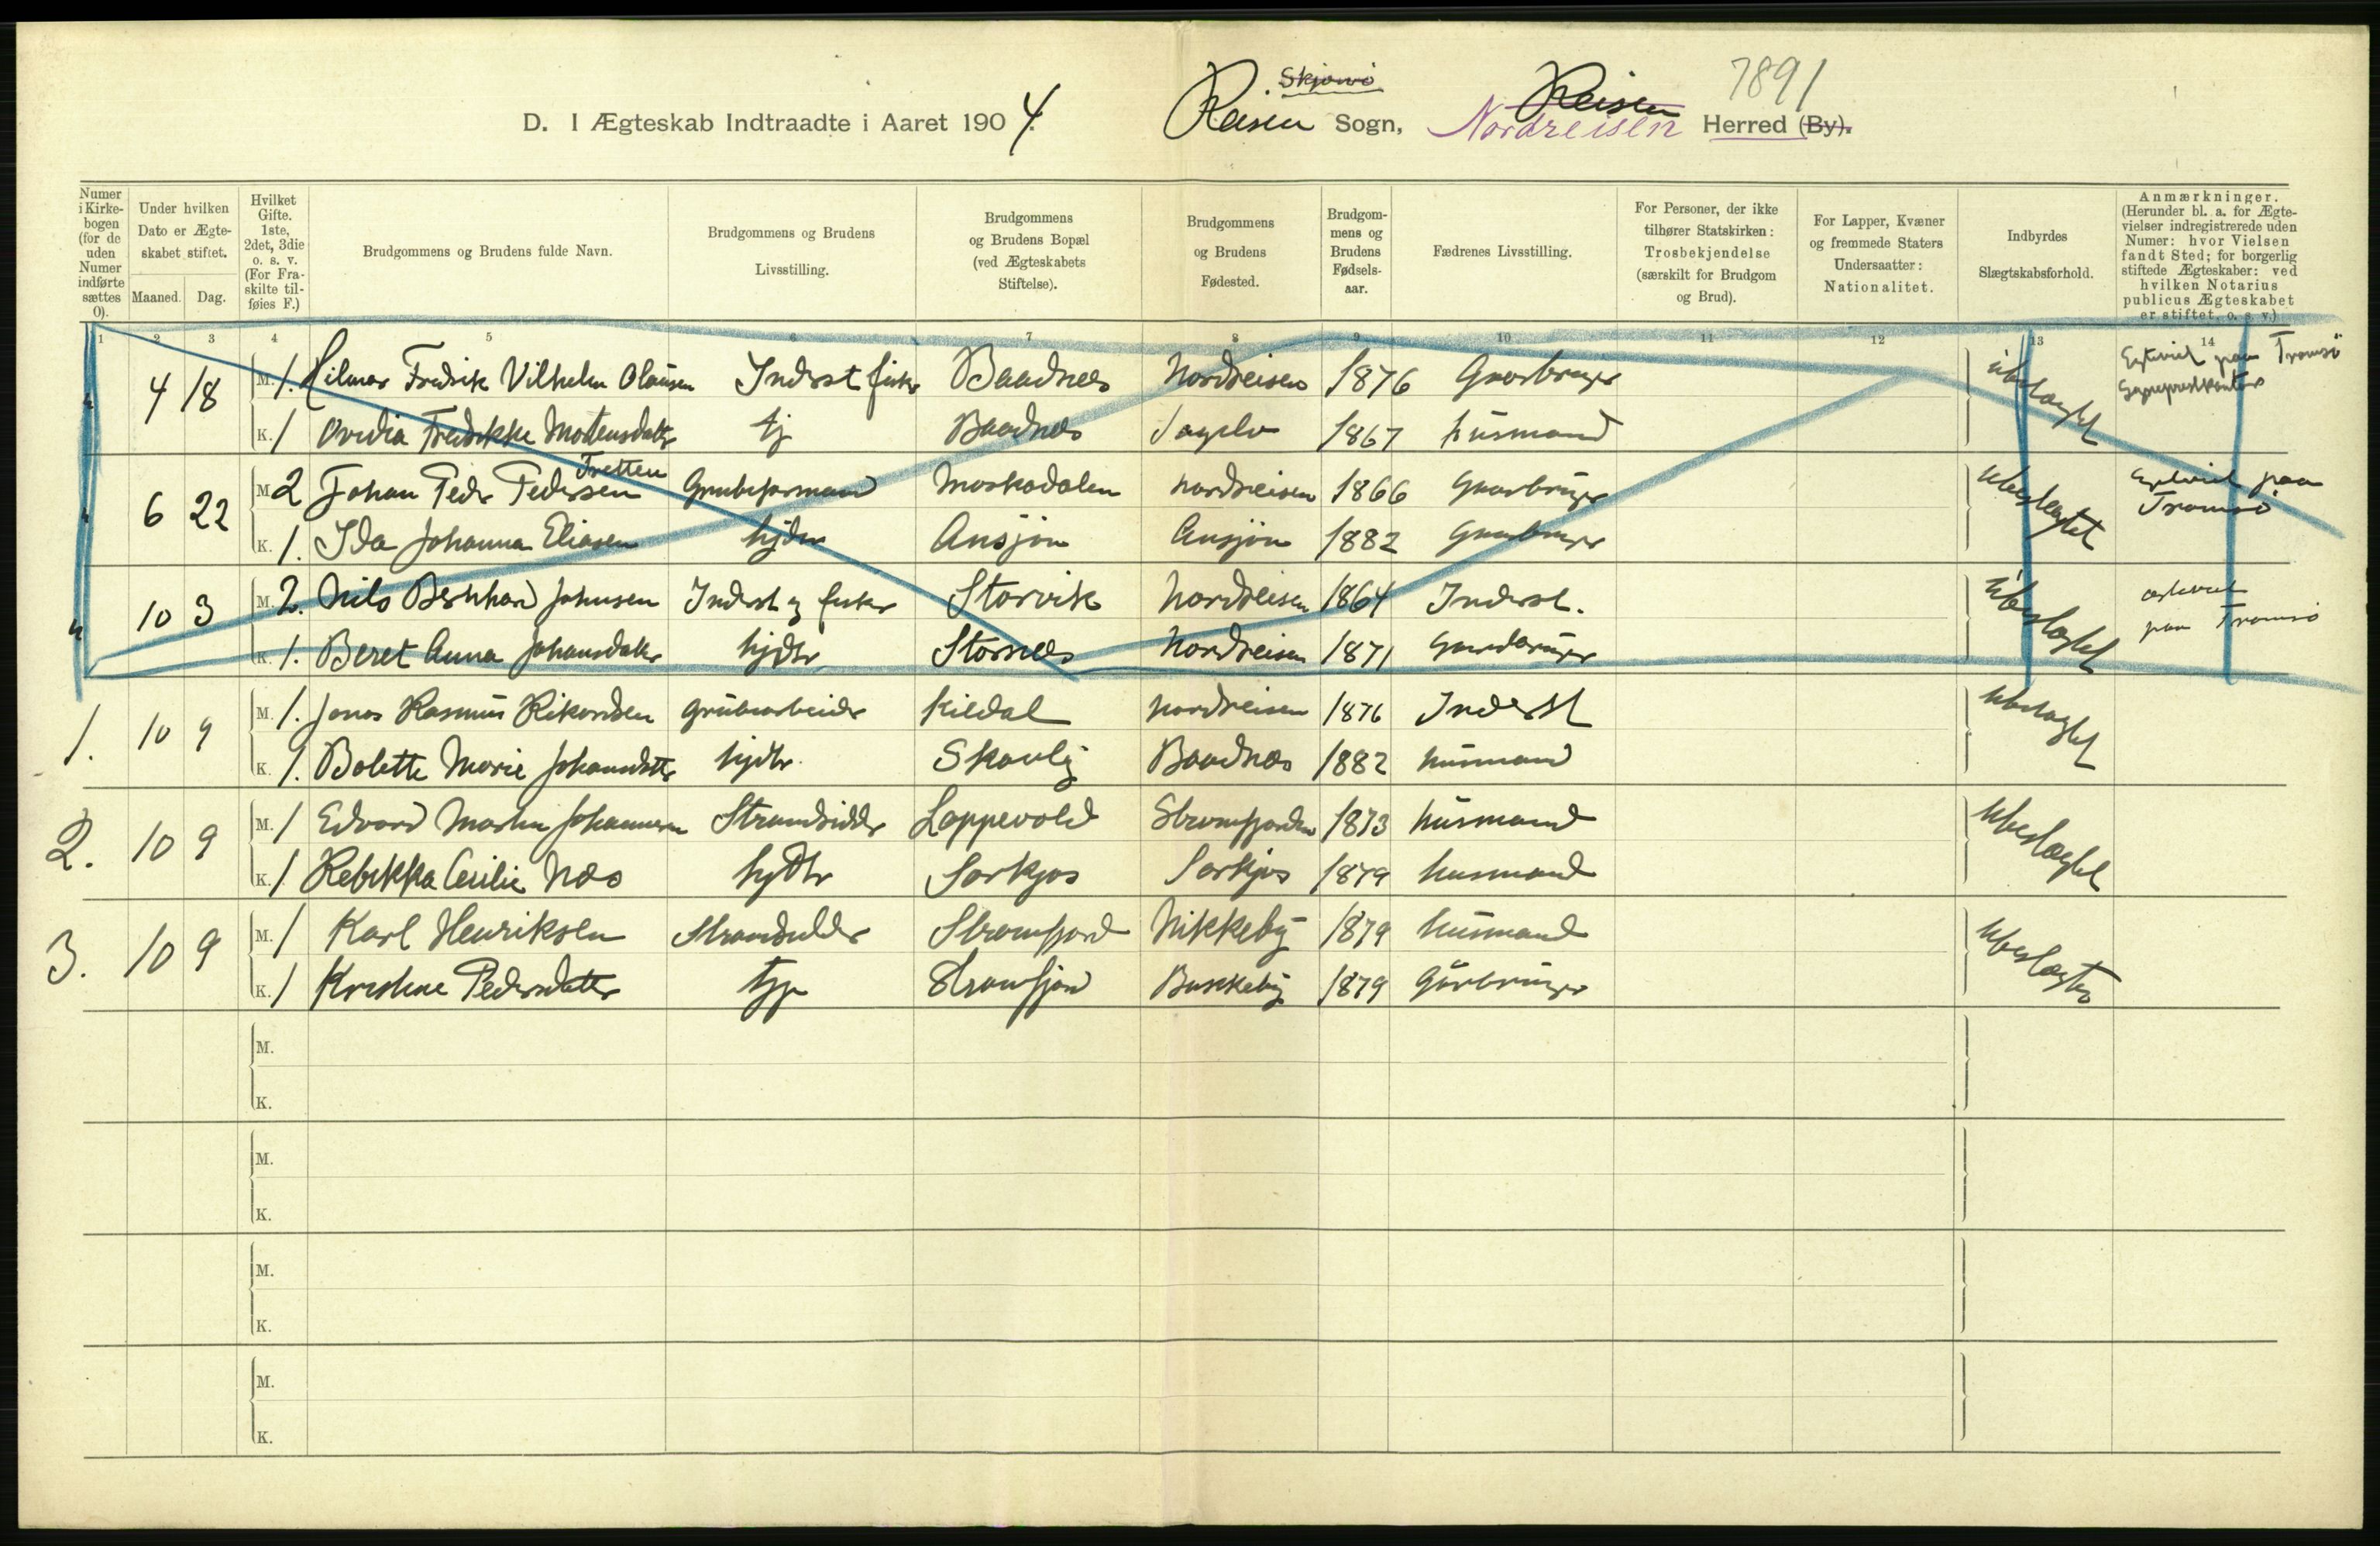 Skjervö 7891
D. I Ægteskab Indtraadte i Aaret 1904. Reisen Sogn, Reisen Nordreisen Herred (By).
Numer i Kirkebogen (for de uden Numer indførte sættes 0).
Under hvilken Dato er Ægteskabet stiftet.
Maaned. Dag.
Hvilket Gifte. 1ste, 2det, 3die o. s. v. (For Fraskilte tilføies F.)
Brudgommens og Brudens fulde Navn.
Brudgommens og Brudens Livsstilling.
Brudgommens og Brudens Bopæl (ved Ægteskabets Stiftelse).
Brudgommens og Brudens Fødested.
Brudgommens og Brudens Fødselsaar.
Fædrenes Livsstilling.
For Personer, der ikke tilhører Statskirken: Trosbekjendelse (særskilt for Brudgom og Brud).
For Lapper, Kvæner og fremmede Staters Undersaatter: Nationalitet.
Indbyrdes Slægtskabsforhold.
Anmærkninger. (Herunder bl. a. for Ægtevielser indregistrerede uden Numer: hvor Vielsen fandt Sted; for borgerlig stiftede Ægteskaber: ved hvilken Notarius publicus Ægteskabet er stiftet, o. s. v.)
1 2 3 4 5 6 7 8 9 10 11 12 13 14
4 18 M. 1. Hilmar Fredrik Vilhelm Olausen Inderst fisker Baadnes Nordreisen 1876 Gaarbruger ubeslægtet Tromsö
K. 1 Ovidia Fredrikke Mortensdatter tj Baadnes 1867 husmand
Tretten
6 22 M. 2 Johan Peder Pedersen Grubeformand Moskodalen Nordreisen 1866 Gaarbruger Ubeslægtet paa Tromsö
K. 1. Ida Johanna Eliasen hjdtr Ansjön Ansjön 1882 Gaarbruger
10 3 M. 2. Nils Bernhard Johnsen Inderst og fisker Storvik Nordreisen 1864 Inderst. Ubeslægtet paa Tromsö
K. 1. Beret Anna Johansdatter hjdtr Storsnes Nordreisen 1871 Gaardbruger
1. 10 9 M. 1. Jonas Rasmus Rikardsen Grubearbeider Kildal Nordreisen 1876 Inderst Ubeslægtet
K. 1. Bolette Marie Johansdatter hjdtr. Skavlig Baadnes 1882 husmand
2. 10 9 M. 1 Edvard Martin Johannesen Strandsidder Loppevold Strømfjorden 1873 husmand Ubeslægtet
K. 1 Rebekka Cecilie Næs hjdtr Sørkjos Sørkjos 1879 husmand
3. 10 9 M. 1 Karl Henriksen Strandsidder Strømfjord Nikkeby 1879 husmand Ubeslægtet
K. 1 Kristine Pedersdatter Strømfjord 1879 Gårbruger
M.
K.
M.
K.
M.
K.
M.
K.